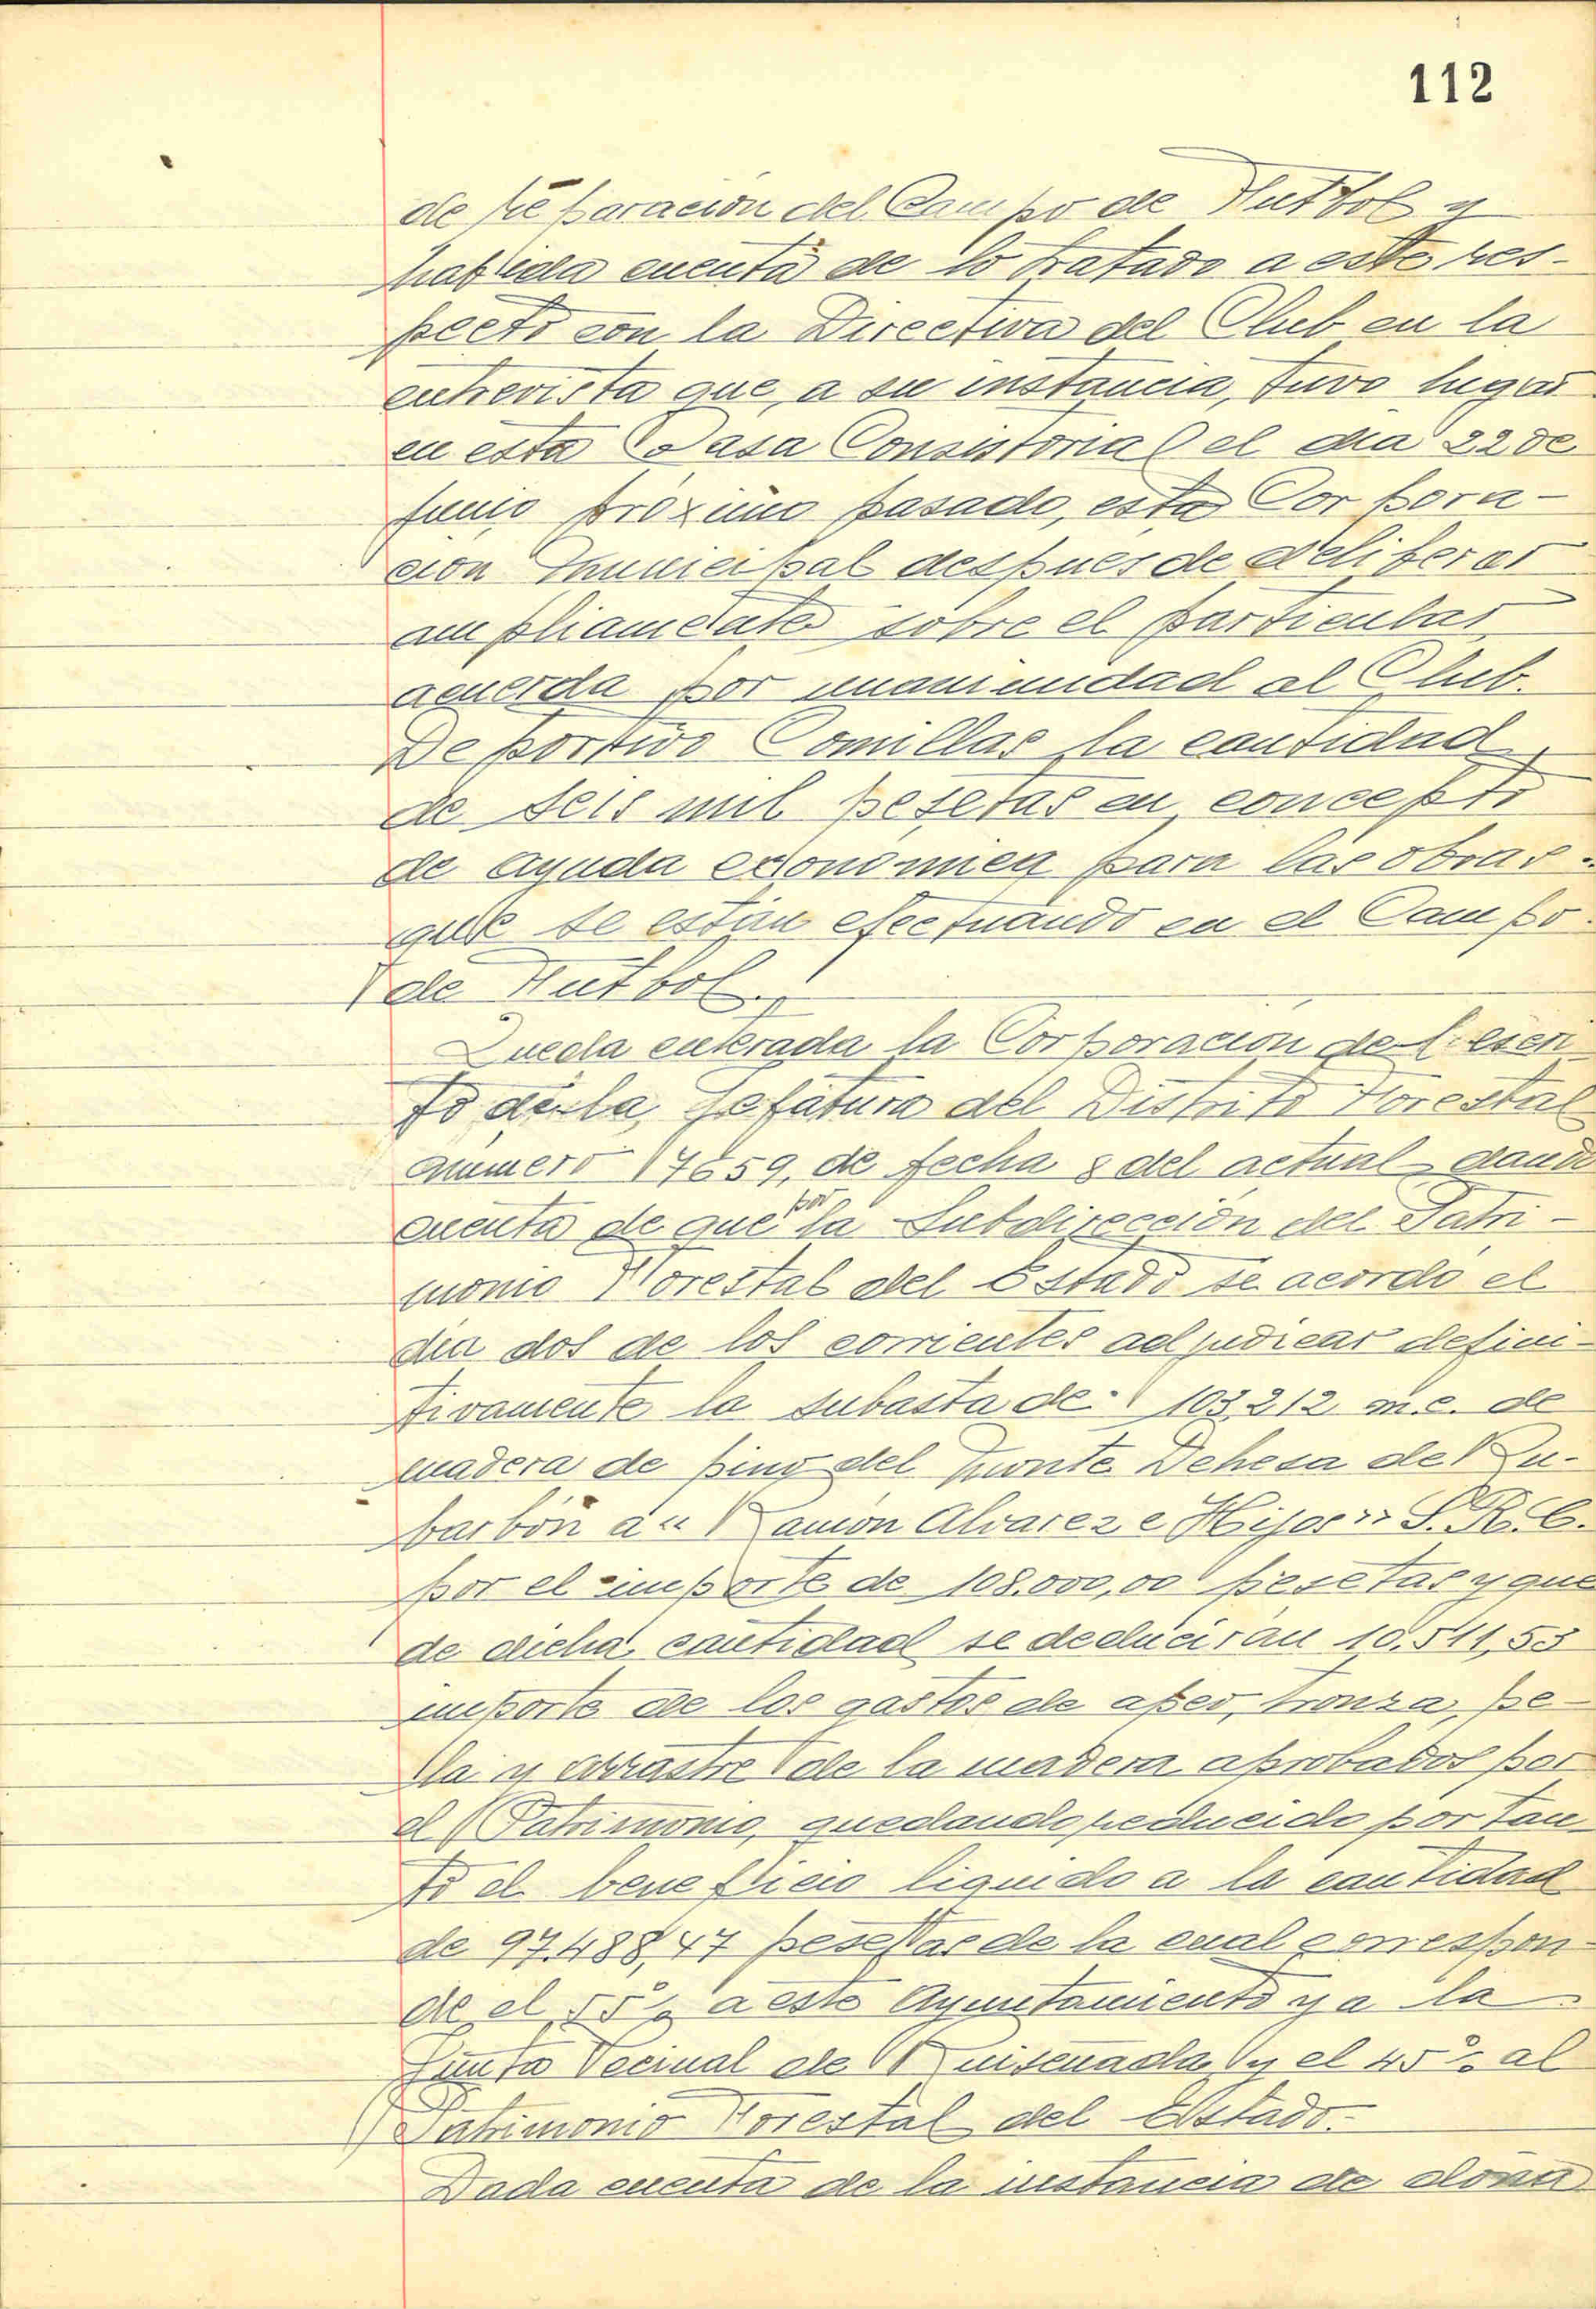 112
de reparación del Campo de Futbol y
habida cuenta de lo tratado a este res-
pecto con la Directiva del Club en la
entrevista que, a su instancia, tuvo lugar
en esta Casa Consistorial el dia 22 de
junio próximo pasado, esta Corpora-
cion Municipal despues de deliberar
ampliamente sobre el particular
acuerda por unanimidad al Club
Deportivo Comillas la cantidad
de seis mil pesetas en concepto
de ayuda económica para las obras
que se están efectuando en el Campo
de Futbol.
Queda enterada la Corporación del escri
to de la Jefatura del Distrito Forestal
número 17659, de fecha 8 del actual dando
cuenta de que por la Subdirección del Patri-
monio Forestal del Estado se acordó el
dia dos de los corrientes adjudicar defini-
tivamente la subasta de 103,212 m.c. de
madera de pino del monte Dehesa de Ru-
barbón a "Ramón Alvarez e Hijos" S.R.C.
por el importe de 108.000,00 pesetas y que
de dicha cantidad se deducirán 10.511,53
importe de los gastos de apeo, tronza, pe-
la y arrastre de la madera aprobados por
el Patrimonio, quedando reducido por tan-
to el beneficio liquido a la cantidad
de 97.488,47 pesetas de la cual correspon-
de el 55% a este Ayuntamiento y a la
Junta Vecinal de Ruiseñada y el 45% al
Patrimonio Forestal del Estado.
Dada cuenta de la instancia de doña